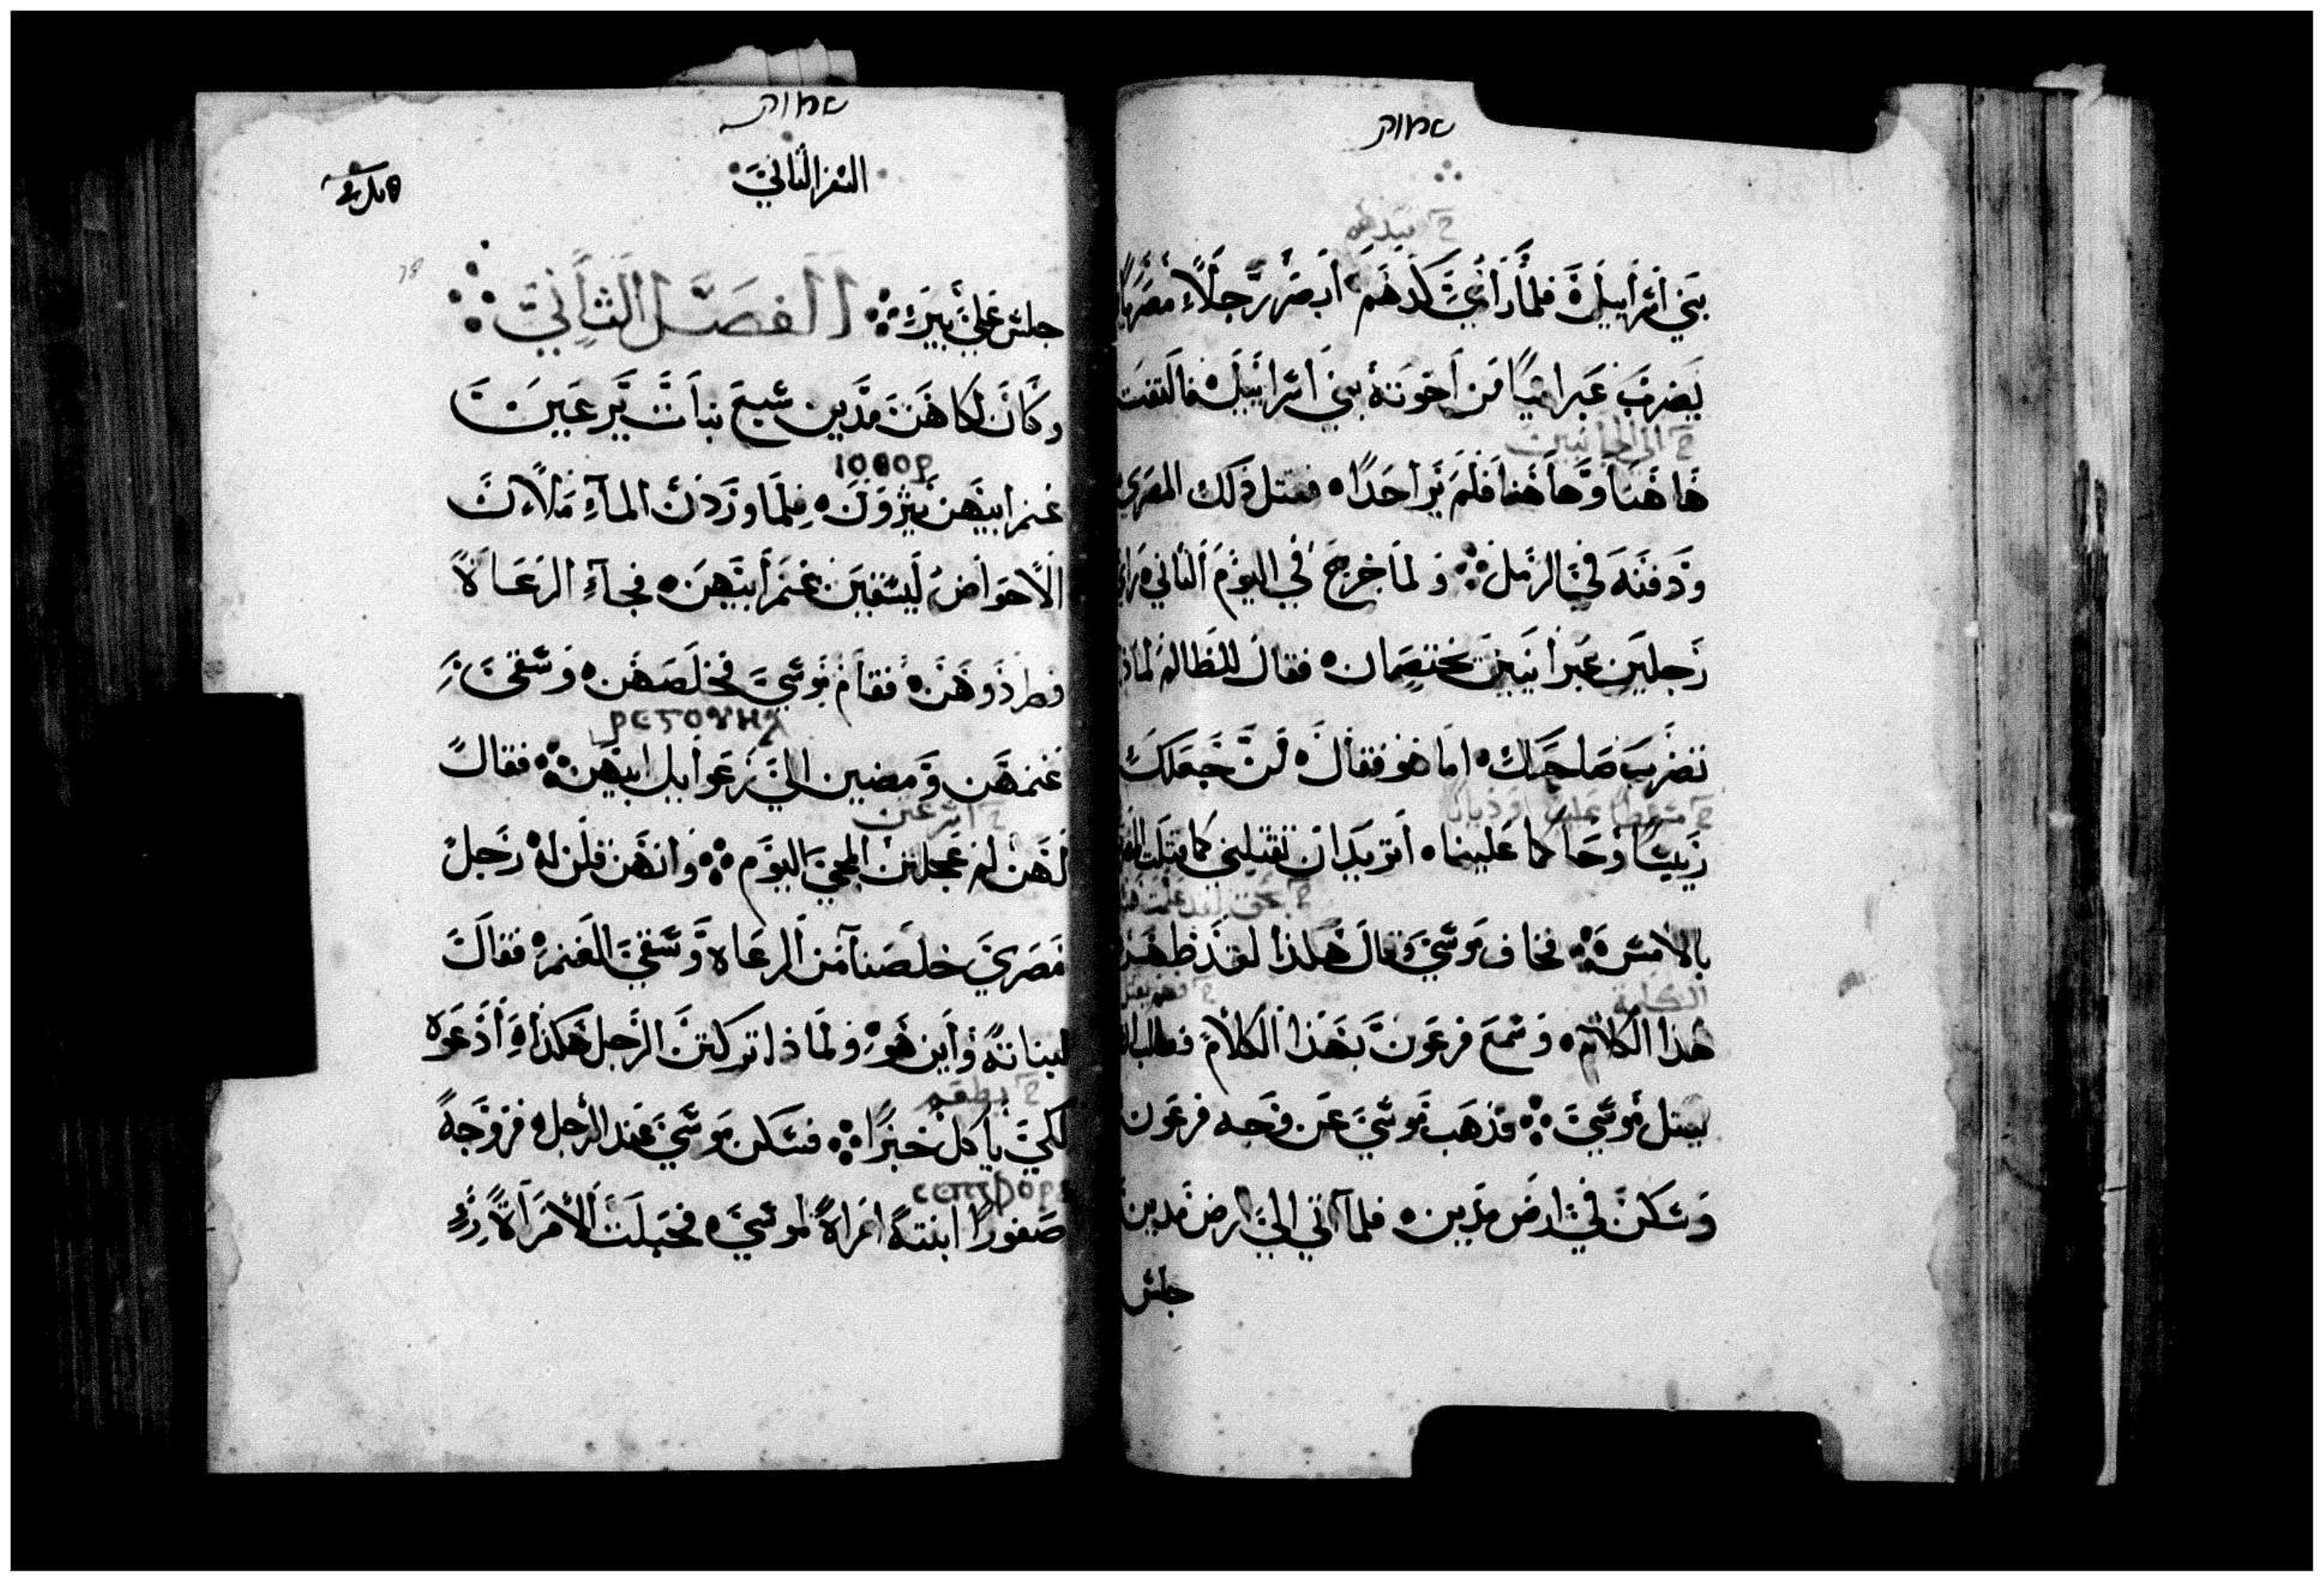 שמות
خ كيدهم
بني اسراييل ه فلما راي كدهم ابصر رجلاً مصرياً
يضرب عبرانياً من اخوته بني اسراييل ه فالتفت
خ الي الجانبين
هاهنا وهاهنا فلم ير احداً ه فقتل ذلك المصري
ودفنه في الرمل ولما خرج في اليوم الثاني راي
رجلين عبرانيين يختصمان ه فقال للظالم لماذا
تضرب صاحبك اما هو فقال ه من جعلك
خ عليه
رييساً وحاكما علينا ه اتريد ان تقتلني كما قتلت
بالامس ه فخاف موسي وقال هكذا لقد ظهر
الكلمة
هذا الكلام ه وسمع فرعون بهذا الكلام فطلب ان
يقتل موسي فذهب موسي عن وجه فرعون
وسكن في ارض مدين ه فلما اتي الي ارض مدين
جلس
שמות
السفر الثاني
جلس علي بير الفصل الثاني
وكان لكاهن مدين سبع بنات يرعين
ⲓⲟⲑⲟⲣ
غنم ابيهن يثرون ه فلما وردن الماء ملان
الاحواض ليسقين غنم ابيهن ه فجاء الرعاة
وطردوهن ه فقام موسي فخلصهن ه وسقي
ⲣⲉⲅⲟⲩⲏⲗ
غنمهن ومضين الي رعوايل ابيهن فقال
خ اسرعتن
لهن لم عجلتن المجي اليوم وانهن قلن له رجل
مصري خلصنا من الرعاه وسقي الغنم ه فقال
لبناته واين هو ه ولماذا تركتن الرجل هكذا ه ادعوه
خ
لكي ياكل خبزاً فسكن موسي عند الرجل ه فزوجه
ⲥⲉⲡⲫⲟⲣⲁ
صفورا ابنته امراة لموسي ه فحبلت الامراة